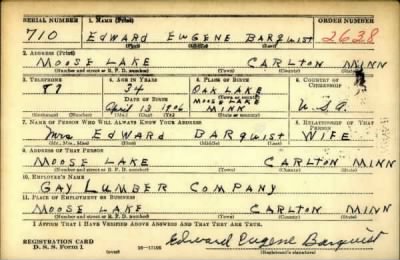 SERIAL NUMBER 1. NAME (Print) ORDER NUMBER
710 EDWARD EUGENE BARQUIST 2638
2. ADDRESS (Print)
MOOSE LAKE CARLTON MINN
(Number and street or R. F. D. number) (Town) (County) (State)
3. TELEPHONE 4. AGE IN YEARS 5. PLACE OF BIRTH 6. COUNTRY OF CITIZENSHIP
87 34 OAK LAKE
DATE OF BIRTH MOOSE LAKE
April 13 1906 MINN U.S.A.
7. NAME OF PERSON WHO WILL ALWAYS KNOW YOUR ADDRESS 8. RELATIONSHIP OF THAT PERSON
Mrs EDWARD BARQUIST WIFE
(Mr., Mrs., Miss) (First) (Middle) (Last)
9. ADDRESS OF THAT PERSON
MOOSE LAKE CARLTON MINN
(Number and street or R. F. D. number) (Town) (County) (State)
10. EMPLOYER'S NAME
GAY LUMBER COMPANY
11. PLACE OF EMPLOYMENT OR BUSINESS
MOOSE LAKE CARLTON MINN
(Number and street or R. F. D. number) (Town) (County) (State)
I AFFIRM THAT I HAVE VERIFIED ABOVE ANSWERS AND THAT THEY ARE TRUE.
REGISTRATION CARD
D. S. S. FORM 1 Edward Eugene Barquist
(Registrant's signature)